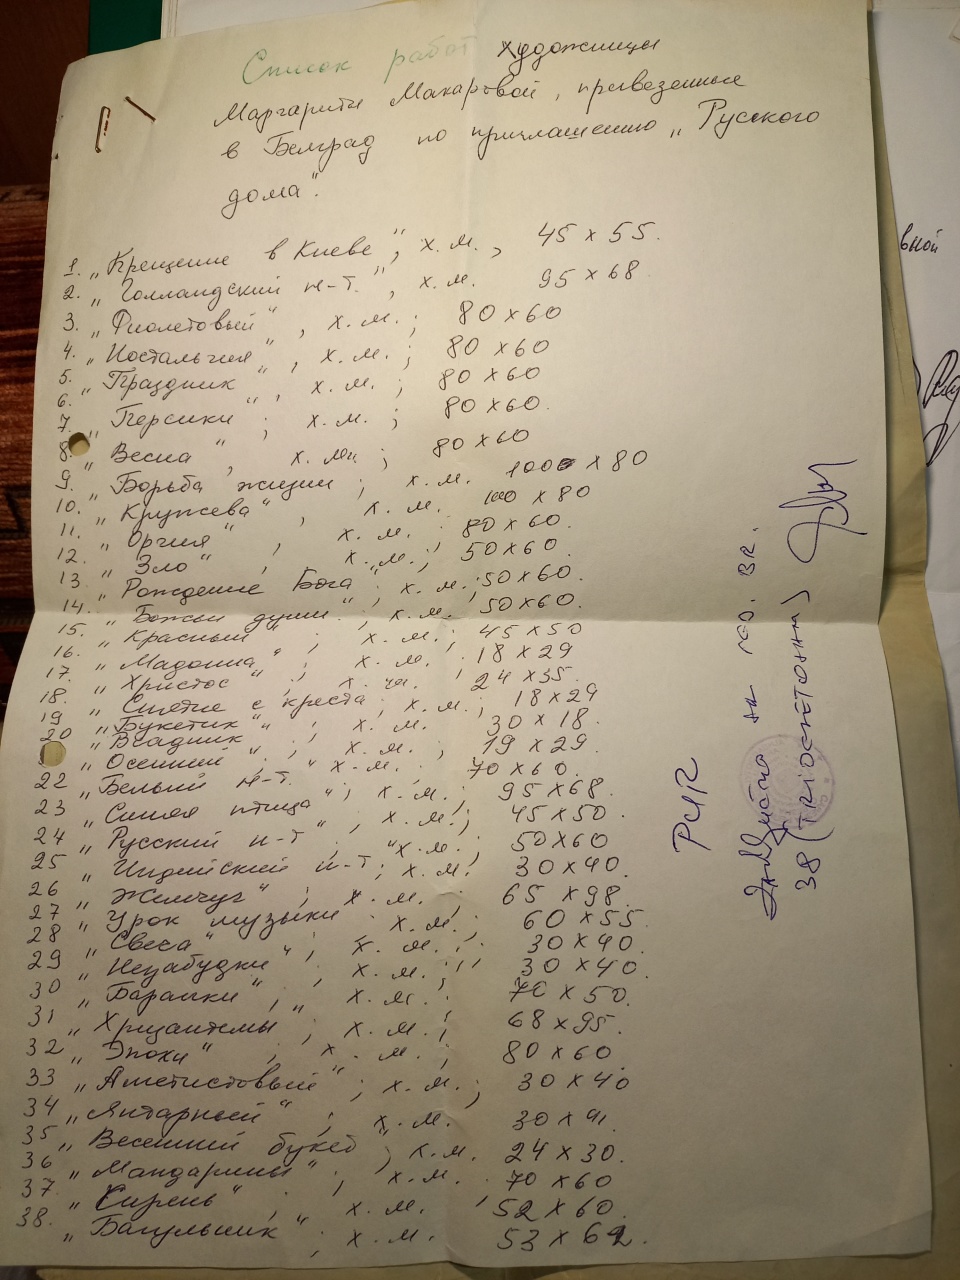 Список работ художницы
Маргариты Макаровой, привезенные
в Белград по приглашению „Русского
дома".
1. „Крещение в Киеве", х.м., 45 х 55.
2. „Голландский н-т.", х.м. 95 х 68
3. „Фиолетовый", х.м.; 80 х 60
4. „Ностальгия", х.м.; 80 х 60
5. „Праздник", х.м.; 80 х 60
6.
7. „Персики"; х.м.; 80 х 60.
8. „Весна", х.м.; 80 х 60
9. „Борьба жизни; х.м. 100 х 80
10. „Кружева", х.м. 100 х 80
11. „Оргия", х.м. 80 х 60.
12. „Зло", х.м., 50 х 60.
13. „Рождение Бога", х.м.; 50 х 60.
14. „Божьи души"; х.м. 50 х 60.
15. „Красный"; х.м.; 45 х 50
16. „Мадонна"; х.м. 18 х 29
17. „Христос"; х.м. 24 х 35.
18. „Снятие с креста; х.м.; 18 х 29
19 „Букетик"; х.м. 30 х 18.
20 „Всадник"; х.м. 19 х 29.
„Осенний"; х.м. 70 х 60.
22 „Белый н-т."; х.м.; 95 х 68.
23 „Синяя птица"; х.м.; 45 х 50.
24 „Русский н-т", х.м.; 50 х 60
25 „Индийский н-т"; х.м. 30 х 40.
26 „Жемчуг"; х.м. 65 х 98.
27 „Урок музыки" х.м.; 60 х 55
28 х.м. 30 х 40.
29 „Незабудки"; х.м. 30 х 40.
30 „Барашки", х.м. 70 х 50.
31 „Хризантемы"; х.м.; 68 х 95.
32 „Эпохи"; х.м. 80 х 60
33 „Аметистовый"; х.м.; 30 х 40
34 „Янтарный"; х.м. 30 х
35 „Весенний букет; х.м. 24 х 30.
36 „Мандарины"; х.м. 70 х 60
37 „Сирень", х.м. 52 х 60.
38. „Багульник"; х.м. 53 х 62.
РЦГ
на
38
вной